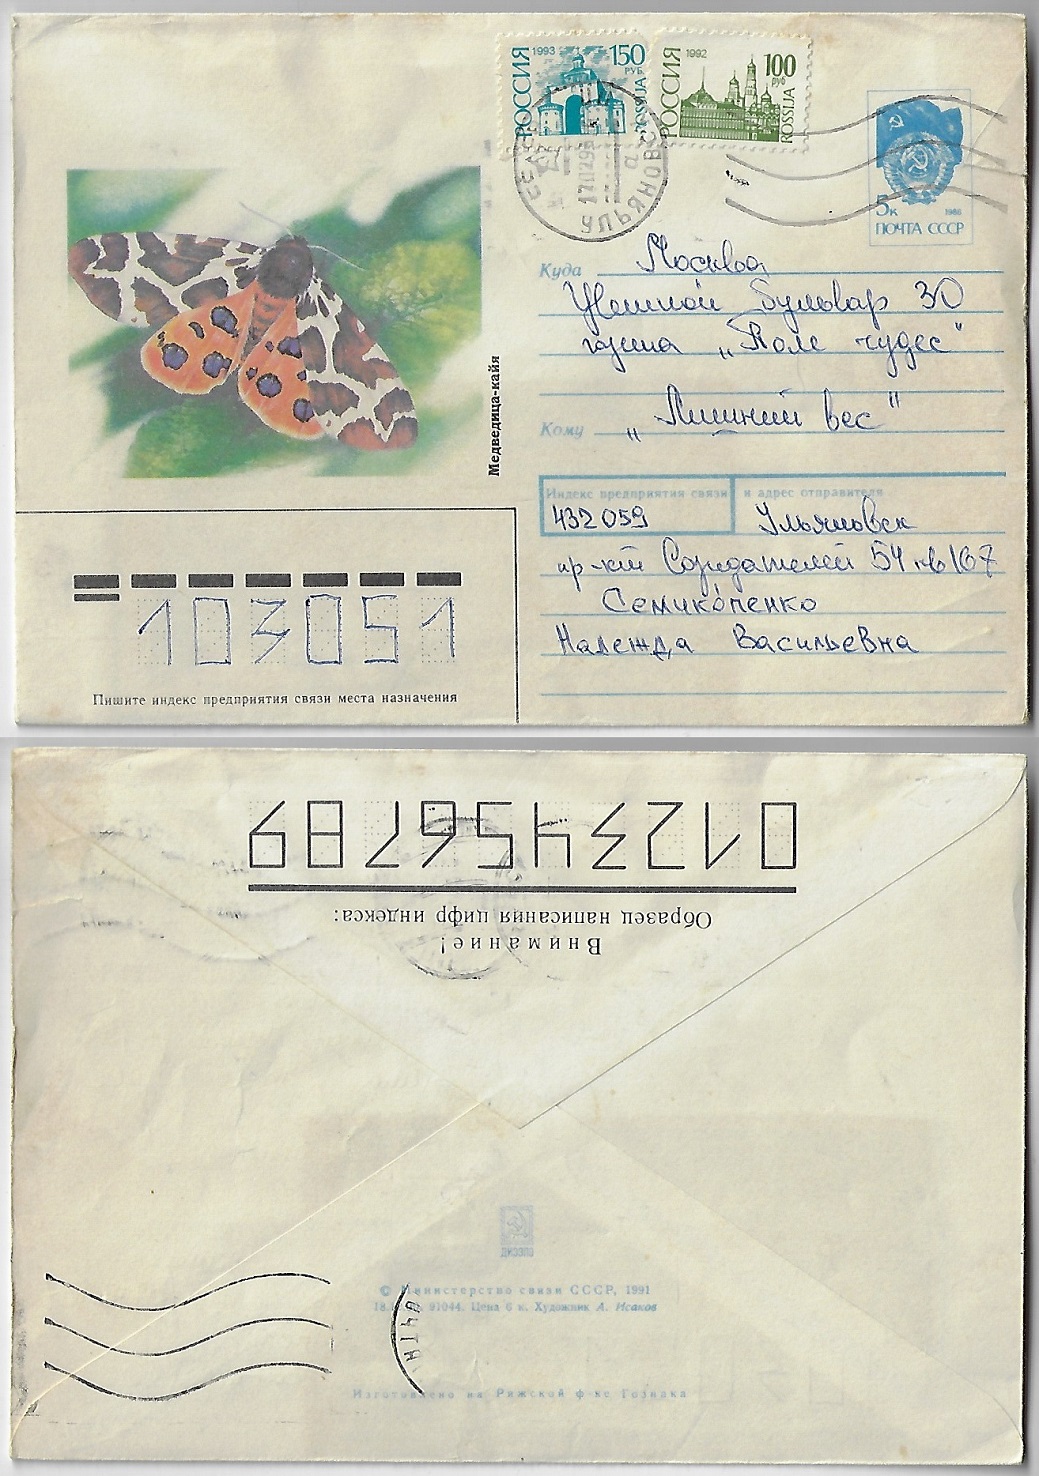 РОССИЯ 1993 150 РУБ. ROSSIJA
РОССИЯ 1992 100 руб ROSSIJA
УЛЬЯНОВСК
5к 1988
ПОЧТА СССР
Медведица-кайя
Куда Москва
Цветной бульвар 30
„Поле чудес"
Кому „Лишний вес"
Индекс предприятия связи и адрес отправителя
432059 Ульяновск
пр-кт Созидателей 54 кв 167
Семикопенко
Надежда Васильевна
103051
Пишите индекс предприятия связи места назначения
Внимание!
Образец написания цифр индекса:
0123456789
© Министерство связи СССР, 1991
91044. Цена 6 к. Художник А. Исаков
Изготовлено на Рижской ф-ке Гознака